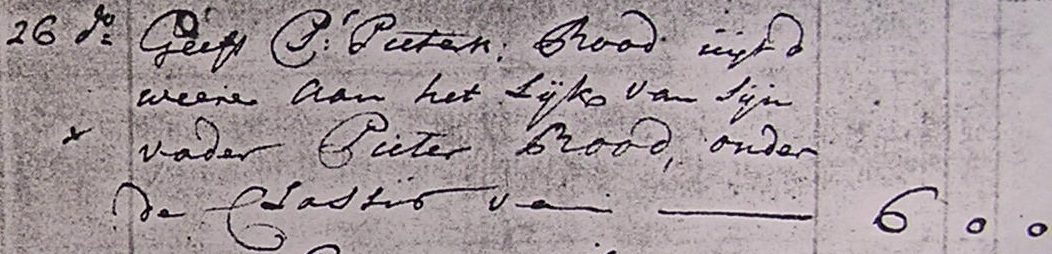 26 do Geeft P: Pietersz: Rood uijt d
weere Aan het Lijk van Sijn
x vader Pieter Rood, onder
de Classis van — 6 0 0